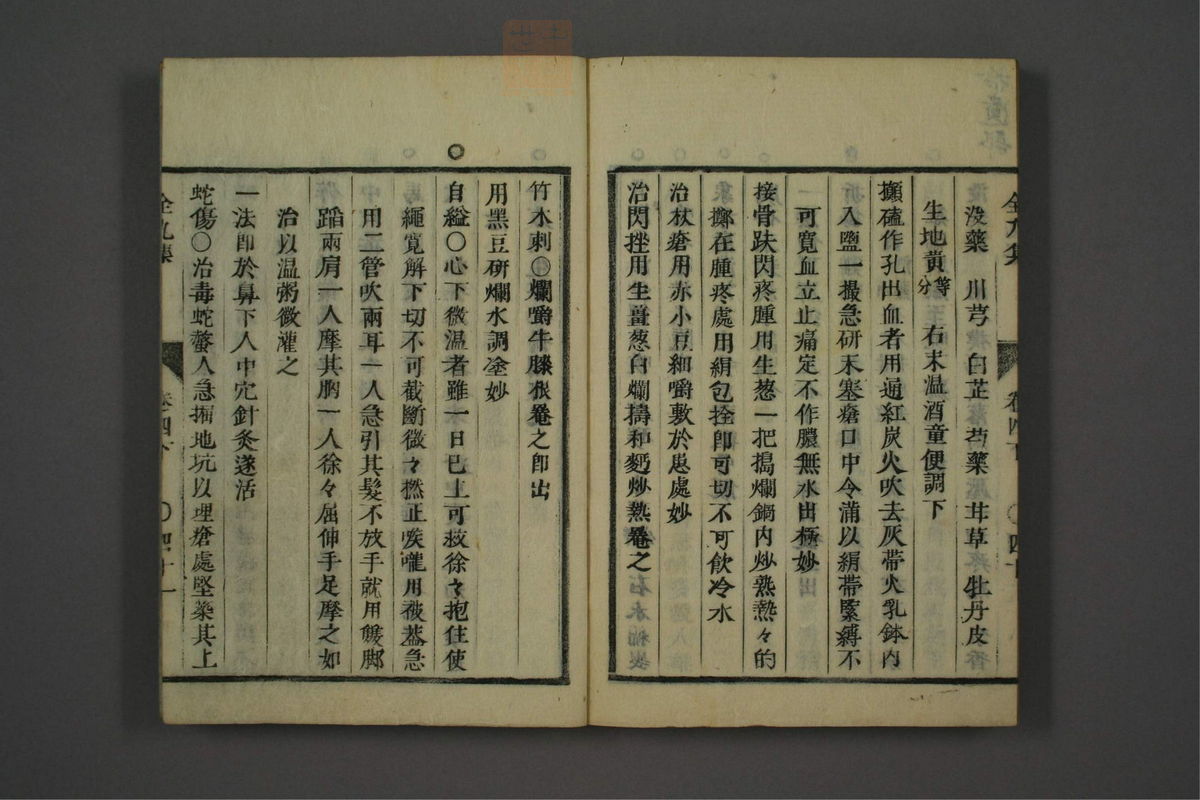 全九集 卷四下 〇 四十
沒藥 川芎 白芷 芍藥 甘草 牡丹皮 香
生地黃 等分 右末温酒童便調下
攧磕作孔出血者用通紅炭火吹去灰帶火乳鉢内
入鹽一撮急研末塞瘡口中令滿以絹帶緊縛不
可寛血立止痛定不作膿無水出極妙
接骨趺閃疼腫用生葱一把搗爛鍋内炒熟熱々的
擲在腫疼處用絹包拴即可切不可飲冷水
治杖瘡用赤小豆細嚼敷於患處妙
治閃挫用生薑葱白爛擣和麪炒熱罨之
竹木刺〇爛嚼牛膝根罨之即出
用黑豆研爛水調塗妙
自縊〇心下微温者雖一日已上可救徐々抱住使
繩寛解下切不可截斷微々撚正喉嚨用被蓋急
用二管吹兩耳一人急引其髮不放手就用膝脚
蹈兩肩一人摩其胸一人徐々屈伸手足摩之如
治以温粥微灌之
一法即於鼻下人中穴針灸遂活
蛇傷〇治毒蛇螫人急掘地坑以埋瘡處堅築其上
全九集 卷四下 〇 四十一